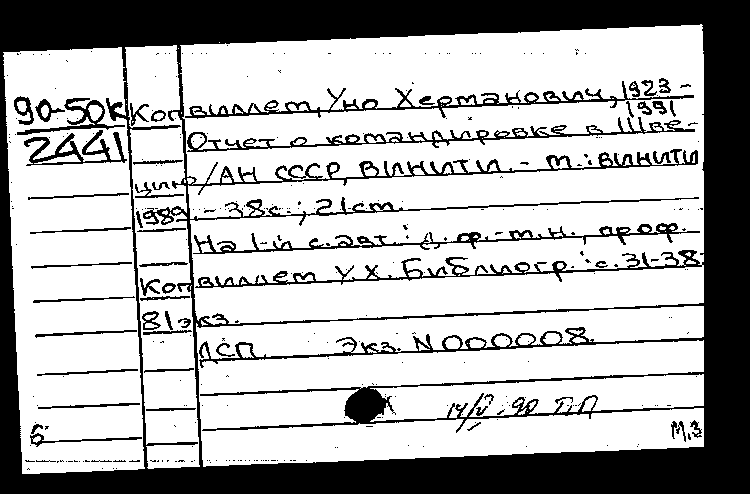 90-50К Копвиллем, Уно Херманович, 1923-
1991
2441 Отчет о командировке в Шве-
цию / АН СССР, ВИНИТИ. - М.: ВИНИТИ
1989. - 38с.; 21см.
На 1-й с. авт.: д. ф.-м.н., проф.
Копвиллем У.Х. Библиогр.: с. 31-38.
81 экз.
ДСП. Экз. N 000008.
14/V-90 П.П
Б М,3